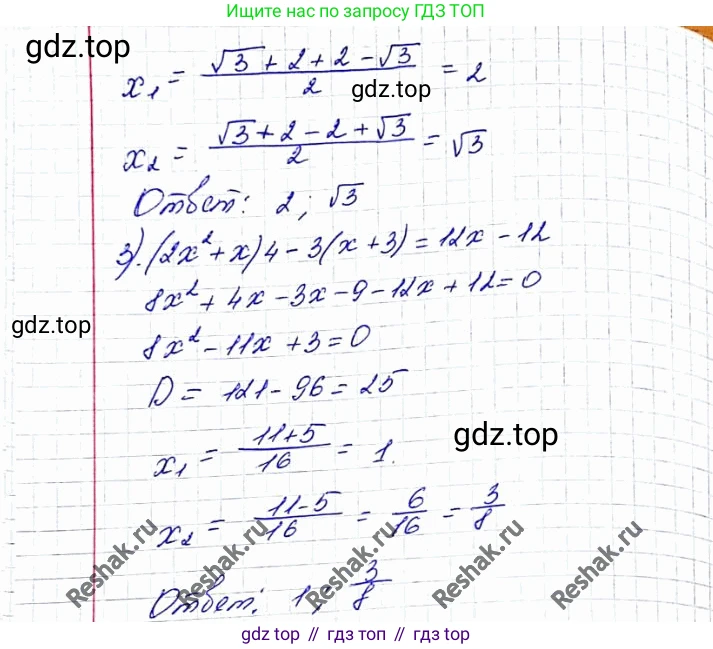 Ищите нас по запросу ГДЗ ТОП
gdz.top
x₁ = (√3 + 2 + 2 − √3)/2 = 2
gdz.top
x₂ = (√3 + 2 − 2 + √3)/2 = √3
Ответ: 2; √3
3). (2x² + x)4 − 3(x + 3) = 12x − 12
8x² + 4x − 3x − 9 − 12x + 12 = 0
gdz.top
8x² − 11x + 3 = 0
D = 121 − 96 = 25
x₁ = (11+5)/16 = 1.
gdz.top
x₂ = (11−5)/16 = 6/16 = 3/8
Reshak.ru
Reshak.ru
Reshak.ru
Reshak.ru
Ответ: 1; 3/8
gdz top // гдз топ // gdz.top